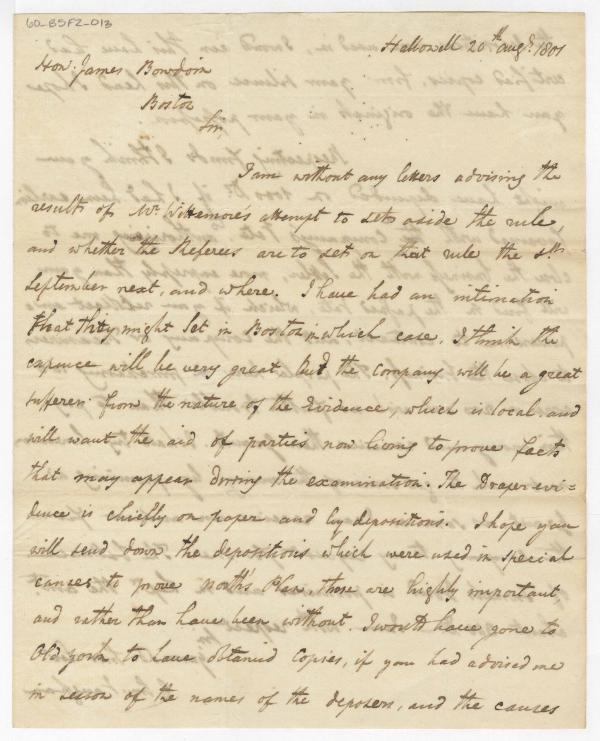 60-BSF2-013
Hallowell 20th augt. 1801
Hon. James Bowdoin
Boston
Sir,
I am without any letters advising the
result of Mr. Wittemore's attempt to set aside the rule,
and whether the Referees are to set on that rule the
September next, and where. I have had an intimation
that they might set in Boston, in which case, I think the
expence will be very great but the Company will be a great
sufferer from the nature of the Evidence, which is local and
will want the aid of parties now living to prove facts
that may appear during the examination. The Draper evi=
dence is chiefly on paper and by depositions. I hope you
will send down the depositions which were used in special
causes to prove North's Plan, those are highly important
and rather than have been without I would have gone to
Old york to have obtained Copies, if you had advised me
in season of the names of the deposers, and the causes